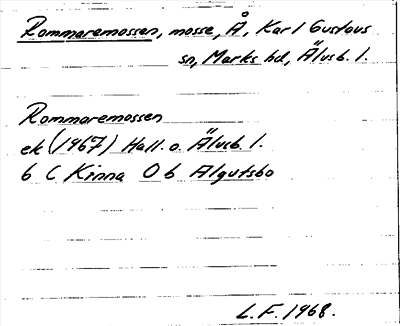 Rammaremossen, mosse, Å, Karl Gustavs
sn, Marks hd, Älvsb. l.
Rammaremossen
ek (1967) Hall. o. Älvsb. l.
6 C Kinna O b Algutsbo
L.F. 1968.